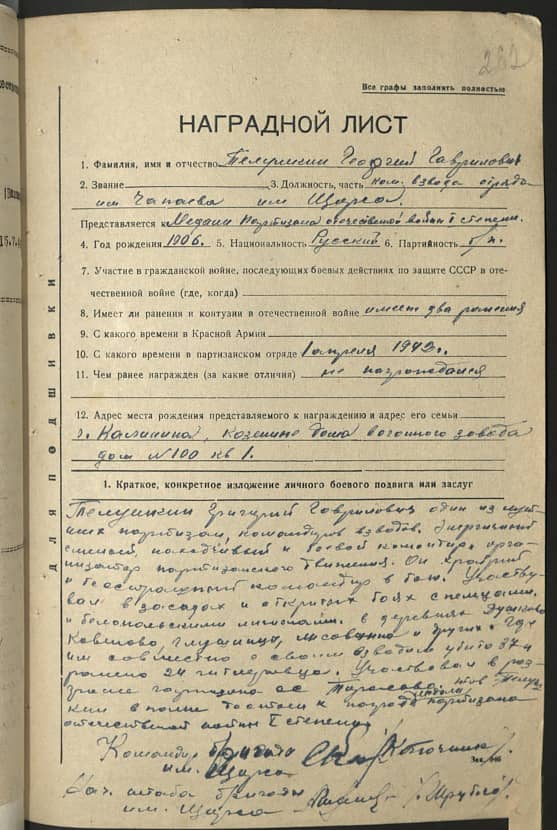 262
Все графы заполнять полностью
НАГРАДНОЙ ЛИСТ
1. Фамилия, имя и отчество Телушкин Георгий Гаврилович
2. Звание 3. Должность, часть ком. взвода отряда
им Чапаева им Щорса.
Представляется к Медали Партизана отечественной войны I степени.
4. Год рождения 1906. 5. Национальность Русский 6. Партийность б/п.
7. Участие в гражданской войне, последующих боевых действиях по защите СССР в оте-
чественной войне (где, когда)
8. Имеет ли ранения и контузии в отечественной войне имеет два ранения
9. С какого времени в Красной Армии
10. С какого времени в партизанском отряде 1 апреля 1942 г.
11. Чем ранее награжден (за какие отличия) не награждался
12. Адрес места рождения представляемого к награждению и адрес его семьи
г. Калинина, дома вагонного завода
дом №100 кв 1.
1. Краткое, конкретное изложение личного боевого подвига или заслуг
Телушкин Григорий Гаврилович один из луч-
ших партизан, командиров взводов. Энергичный
смелый, находчивый и боевой командир, орга-
низатор партизанского движения. Он храбрый
и бесстрашный командир в бою. Участво-
вал в засадах и открытых боях с немцами.
и в деревнях
и других. Где
им совместно с своим взводом убито 37 и
ранено 24 гитлеровца. Участвовал в раз-
громе гарнизона тов Телуш-
кин вполне достоин к награде медали партизана
отечественной войны I степени
Командир бригады
им. Щорса
Нач. штаба бригады
им. Щорса
ДЛЯ ПОДШИВКИ